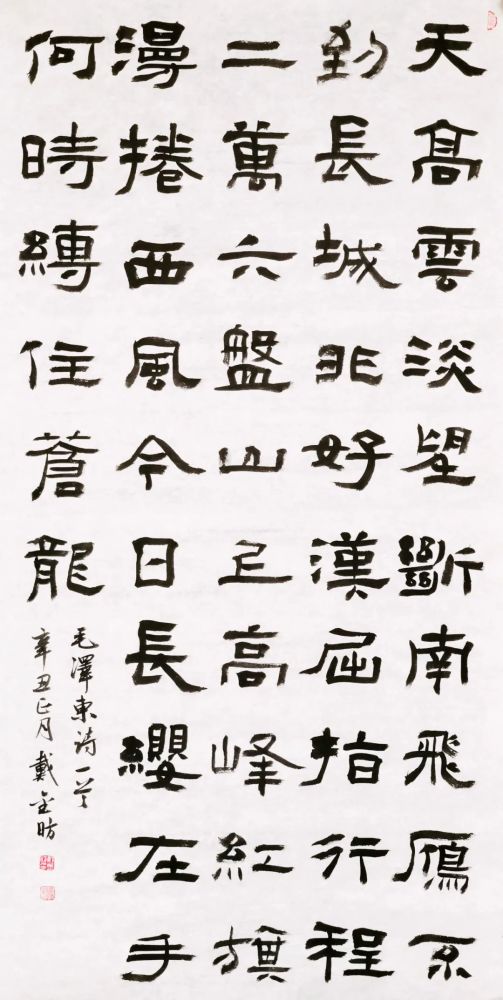 天髙雲淡望斷南飛鴈不
到長城非好漢屈指行程
二萬六盤山上高峰紅旗
漫捲西風今日長纓在手
何時縛住蒼龍
毛澤東詩一首
辛丑正月戴金昉